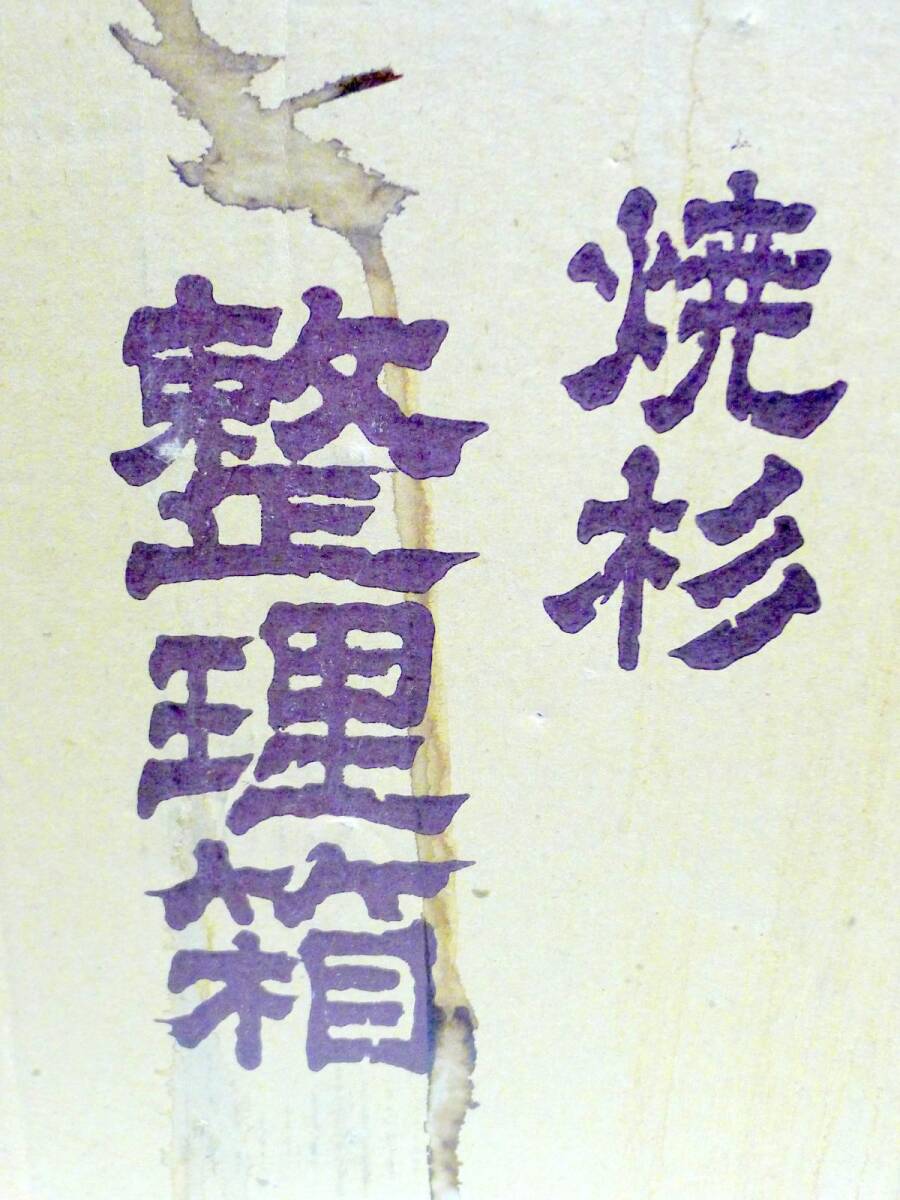 焼杉
整理箱